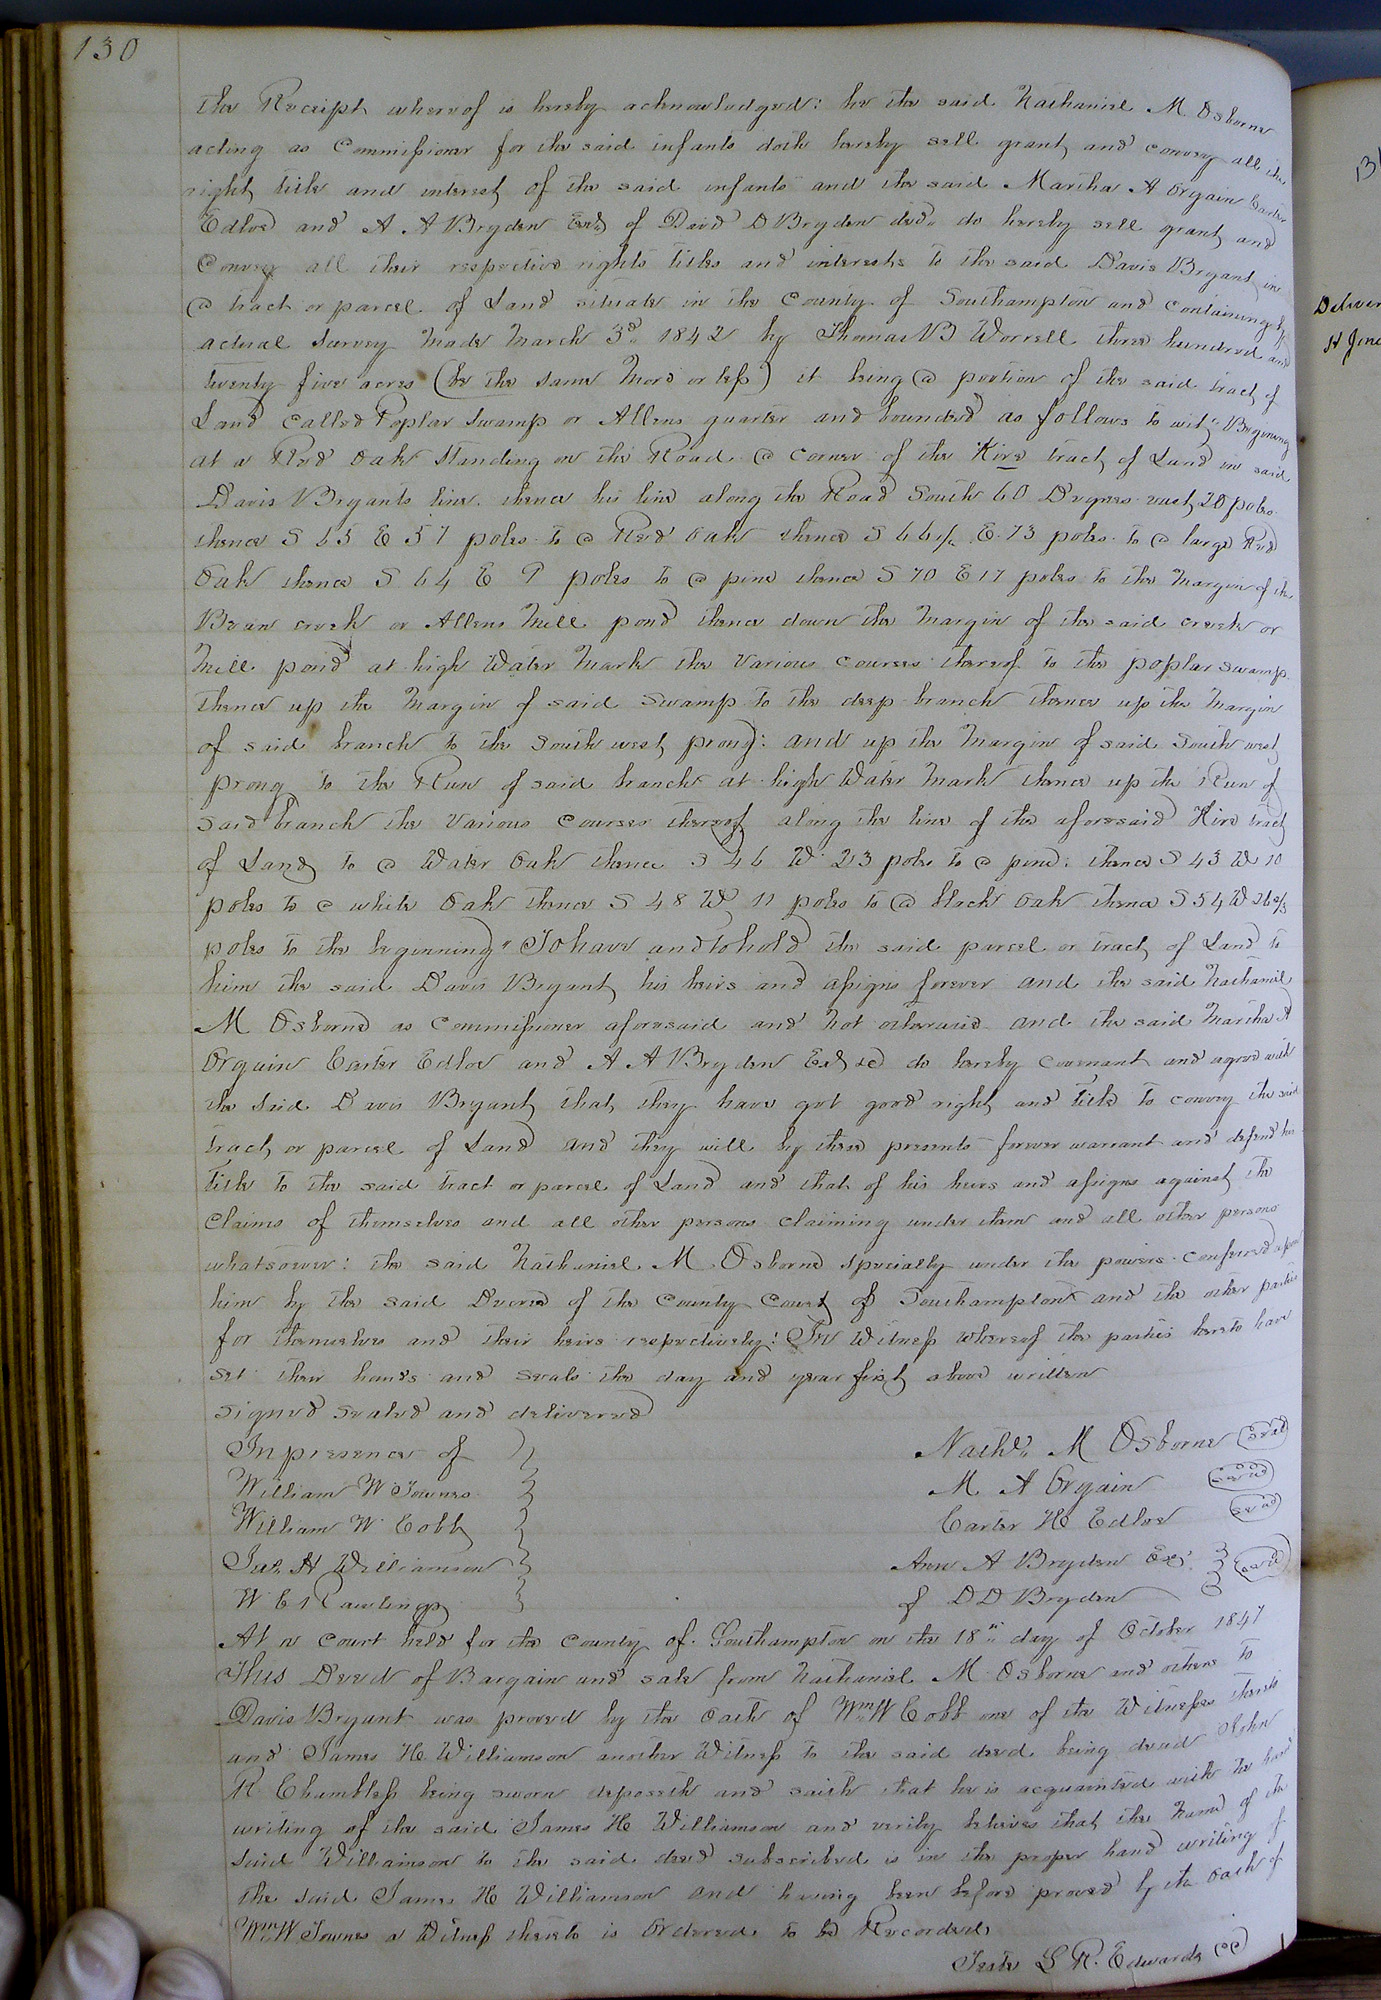 130
the Receipt whereof is hereby acknowledged: he the said Nathaniel M Osborne
acting as Commissioner for the said infants doth hereby sell grant and convey all the
right title and interest of the said infants and the said Martha A Orgain Carter
Edloe and A A Bryden Exr. of David D Bryden decd. do hereby sell grant and
Convey all their respective rights titles and interests to the said Davis Bryant in
a tract or parcel of Land situate in the County of Southampton and containing by
actual Survey Made March 3d. 1842 by Thomas B Worrell three hundred and
twenty five acres (be the same More or less) it being a portion of the said tract of
Land called Poplar Swamp or Allens quarter and bounded as follows to wit, "Begining
at a Red Oak Standing on the Road a corner of the Hire tract of Land in said
Davis Bryants line. thence his line along the Road South 60 Degrees east 20 poles
thence S 65 E 57 poles to a Red Oak thence S 66½ E 73 poles to a large Red
Oak thence S 64 E 9 poles to a pine thence S 70 E 17 poles to the Margin of the
creek or Allens Mill pond thence down the Margin of the said creek or
Mill pond at high Water Mark the Various courses thereof to the poplar swamp
thence up the Margin of said Swamp to the deep branch thence up the Margin
of said branch to the South west prong: and up the Margin of said South west
prong to the Run of said branch at high Water Mark thence up the Run of
said branch the Various Courses thereof along the line of the aforesaid Hire tract
of Land to a Water Oak thence S 46 W 23 poles to a pine: thence S 43 W 10
poles to a white Oak thence S 48 W 11 poles to a black Oak thence S 54 W 26⅔
poles to the beginning" To have and to hold the said parcel or tract of Land to
him the said Davis Bryant his heirs and assigns forever and the said Nathaniel
M Osborne as Commissioner aforesaid and Not otherwise and the said Martha A
Orgain Carter Edloe and A A Bryden Exr &c do hereby covenant and agree with
the Said Davis Bryant that they have got good right and title to convey the said
tract or parcel of Land and they will by these presents forever warrant and defend his
title to the said tract or parcel of Land and that of his heirs and assigns against the
Claims of themselves and all other persons claiming under them and all other persons
whatsoever: the said Nathaniel M Osborne specially under the powers conferred upon
him by the said Decree of the County Court of Southampton and the other parties
for themselves and their heirs respectively: In Witness whereof the parties hereto have
set their hands and seals the day and year first above written
signed sealed and delivered
In presence of
Nathl. M Osborne seal
William W Townes
M A Orgain seal
William W Cobb
Carter H Edloe seal
Jas. H Williamson
Ann A Bryden Exr. seal
W E Rawlings
of D D Bryden
At a Court held for the County of Southampton on the 18th day of October 1847
This Deed of Bargain and sale from Nathaniel M Osborne and others to
Davis Bryant was proved by the Oath of Wm W Cobb one of the Witnesses thereto
and James H Williamson another Witness to the said deed being dead John
R Chambless being sworn deposeth and saith that he is acquainted with the hand
writing of the said James H Williamson and verily believes that the Name of the
Said Williamson to the said deed subscribed is in the proper hand writing of
the said James H Williamson and having been before proved by the Oath of
Wm W Townes a Witness thereto is Ordered to be Recorded
Teste L R. Edwards CC
131
Deliver